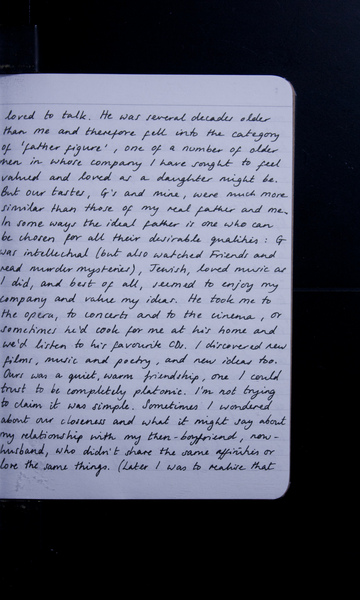 loved to talk. He was several decades older
than me and therefore fell into the category
of 'father figure', one of a number of older
men in whose company I have sought to feel
valued and loved as a daughter might be.
But our tastes, G's and mine, were much more
similar than those of my real father and me.
In some ways the ideal father is one who can
be chosen for all their desirable qualities: G
was intellectual (but also watched Friends and
read murder mysteries), Jewish, loved music as
I did, and best of all, seemed to enjoy my
company and value my ideas. He took me to
the opera, to concerts and to the cinema, or
sometimes he'd cook for me at his home and
we'd listen to his favourite CDs. I discovered new
films, music and poetry, and new ideas too.
Ours was a quiet, warm friendship, one I could
trust to be completely platonic. I'm not trying
to claim it was simple. Sometimes I wondered
about our closeness and what it might say about
my relationship with my then-boyfriend, now-
husband, who didn't share the same affinities or
love the same things. (Later I was to realise that